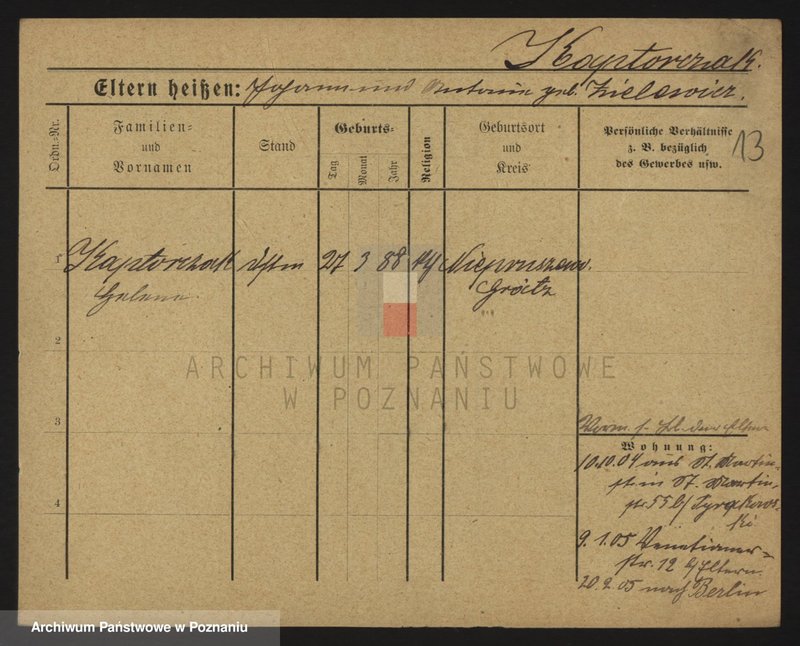 Kaptorczak.
Eltern heißen: Johann und Antonie geb. Zielewicz.
Ordn.-Nr.
Familien-
und
Vornamen
Stand
Geburts-
Tag
Monat
Jahr
Religion
Geburtsort
und
Kreis
Persönliche Verhältnisse
z. B. bezüglich
des Gewerbes usw.
13
1 Kaptorczak 27 3 88 Niepruszewo.
Helene Grätz
2
ARCHIWUM PAŃSTWOWE
W POZNANIU
3
4
Wohnung:
10.10.04 aus St. Martin-
str. in St. Martin-
str. 55 b/
9.1.05 Venetianer-
str. 12 b/ Eltern.
20.2.05 nach Berlin
Archiwum Państwowe w Poznaniu